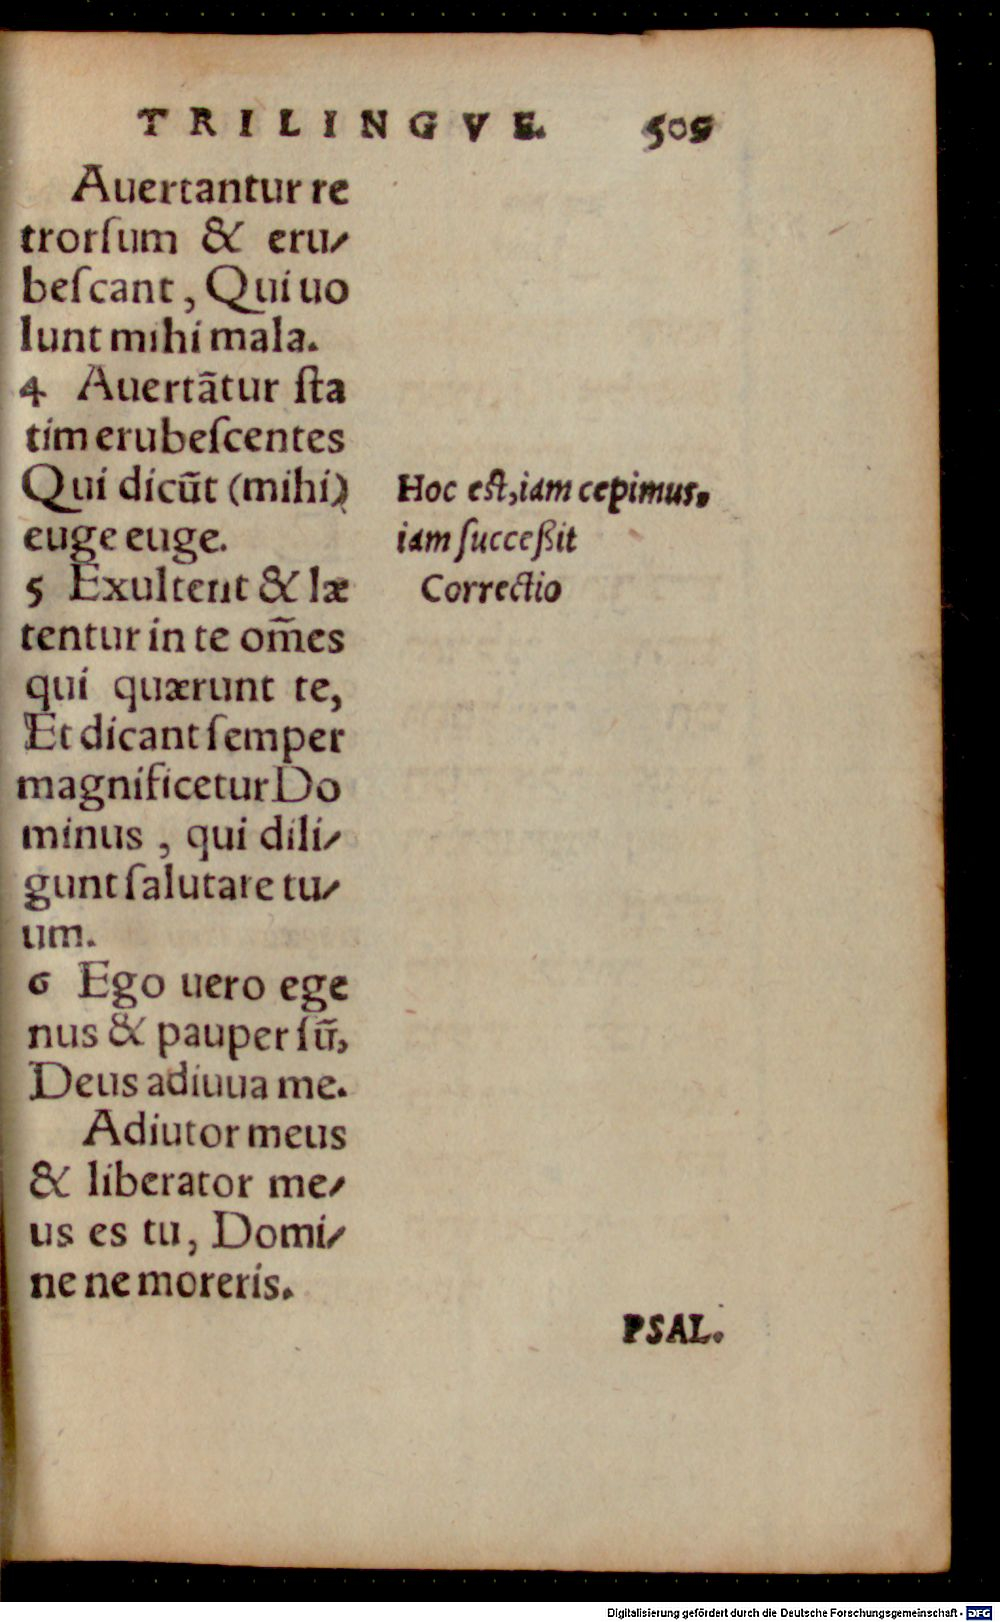 TRILINGVE. 509
Auertantur re
trorſum & eru⸗
beſcant, Qui uo
lunt mihi mala.
4 Auertãtur ſta
tim erubeſcentes
Qui dicũt (mihi)
euge euge.
5 Exultent & læ
tentur in te om̃es
qui quærunt te,
Et dicant ſemper
magnificetur Do
minus, qui dili⸗
gunt ſalutare tu⸗
um.
6 Ego uero ege
nus & pauper ſũ,
Deus adiuua me.
Adiutor meus
& liberator me⸗
us es tu, Domi⸗
ne ne moreris.
Hoc est, iam cepimus.
iam ſucceßit
Correctio
PSAL.
Digitalisierung gefördert durch die Deutsche Forschungsgemeinschaft - DFG